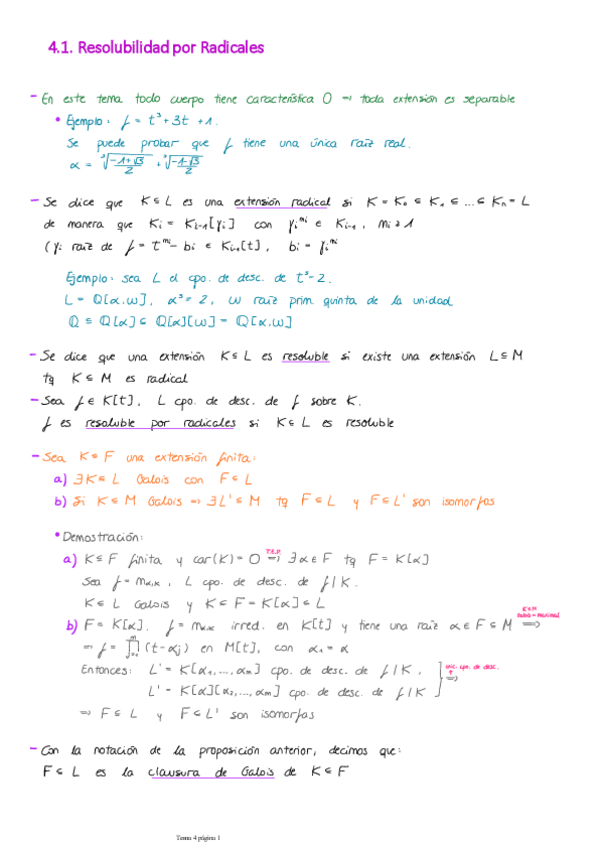 4.1. Resolubilidad por Radicales
- En este tema todo cuerpo tiene característica 0 ⇒ toda extensión es separable
• Ejemplo: f = t³ + 3t + 1.
Se puede probar que f tiene una única raíz real.
α = ∛((-1+√5)/2) + ∛((-1-√5)/2)
- Se dice que K ⊆ L es una extensión radical si K = K₀ ⊆ K₁ ⊆ ... ⊆ Kₙ = L
de manera que Kᵢ = Kᵢ₋₁[γᵢ] con γᵢᵐⁱ ∈ Kᵢ₋₁, mᵢ ≥ 1
(γᵢ raíz de f = tᵐⁱ - bᵢ ∈ Kᵢ₋₁[t], bᵢ = γᵢᵐⁱ
Ejemplo: sea L el cpo. de desc. de t³-2.
L = Q[α,ω], α³ = 2, ω raíz prim. quinta de la unidad
Q ⊆ Q[α] ⊆ Q[α][ω] = Q[α,ω]
- Se dice que una extensión K ⊆ L es resoluble si existe una extensión L ⊆ M
tq K ⊆ M es radical
- Sea f ∈ K[t], L cpo. de desc. de f sobre K.
f es resoluble por radicales si K ⊆ L es resoluble
- Sea K ⊆ F una extensión finita:
a) ∃ K ⊆ L Galois con F ⊆ L
b) Si K ⊆ M Galois ⇒ ∃ L' ⊆ M tq F ⊆ L y F ⊆ L' son isomorfas
• Demostración:
a) K ⊆ F finita y car(K) = 0 ⇒ (T.E.P.) ∃ α ∈ F tq F = K[α]
Sea f = m_{α,K}, L cpo. de desc. de f/K.
K ⊆ L Galois y K ⊆ F = K[α] ⊆ L
b) F = K[α]. f = m_{α,K} irred. en K[t] y tiene una raíz α ∈ F ⊆ M ⇒
⇒ f = ∏ⱼ₌₁ᵐ (t-αⱼ) en M[t], con α₁ = α
Entonces: L' = K[α₁,...,αₘ] cpo. de desc. de f/K,
L' = K[α][α₂,...,αₘ] cpo. de desc. de f/K
cpo. de desc. ⇒
⇒ F ⊆ L y F ⊆ L' son isomorfas
- Con la notación de la proposición anterior, decimos que:
F ⊆ L es la clausura de Galois de K ⊆ F
Tema 4 página 1